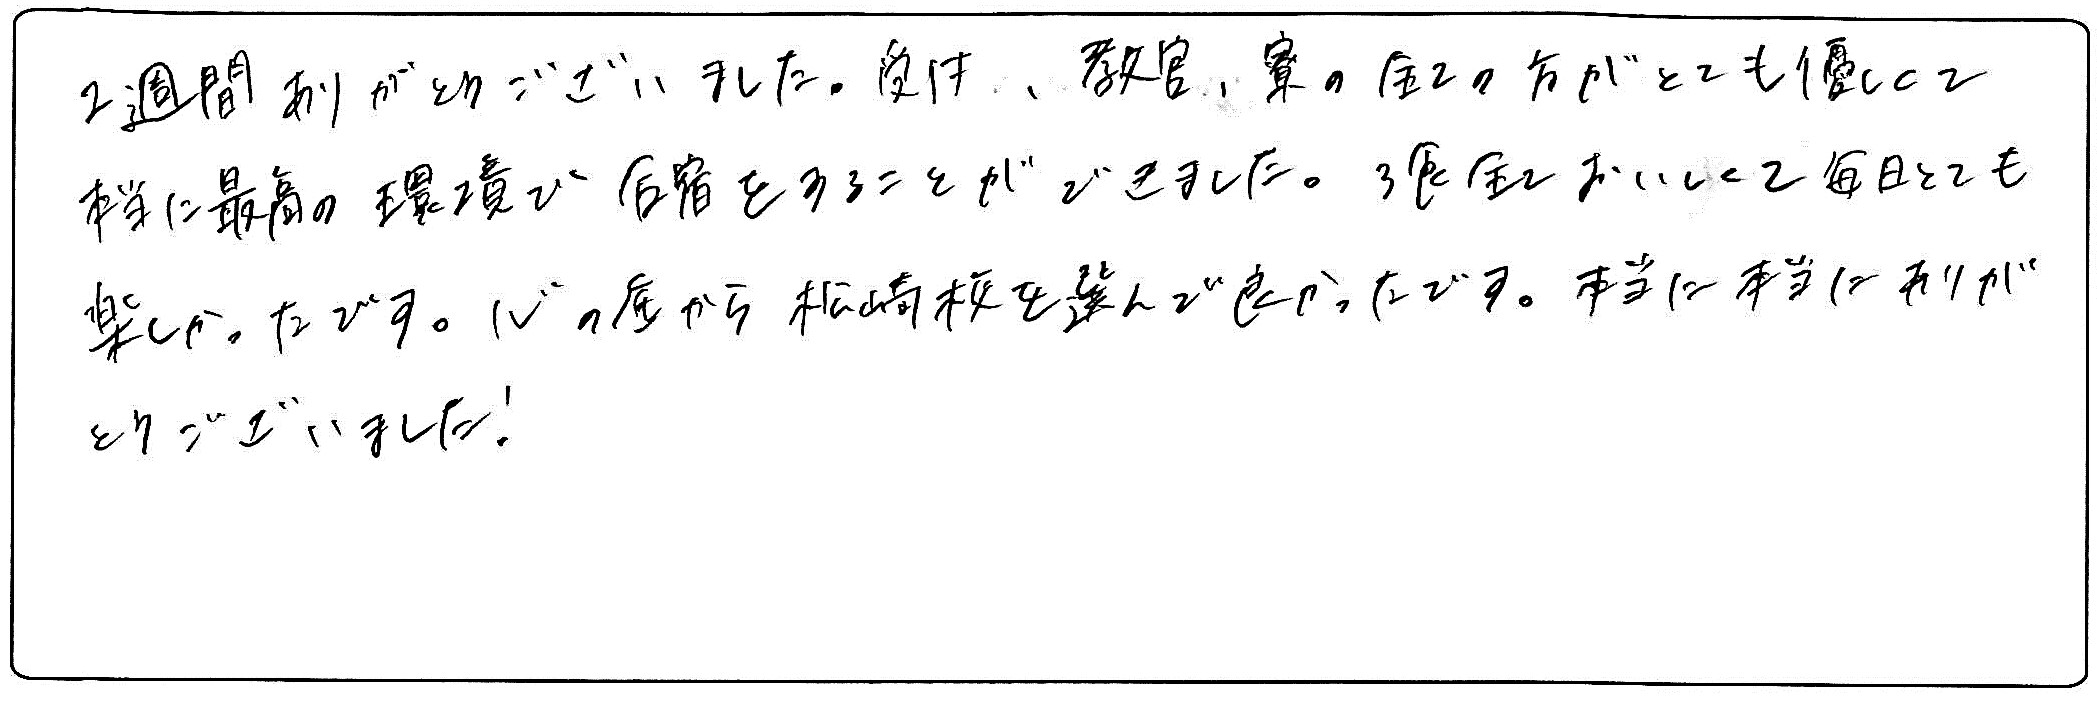 2週間ありがとうございました。受付、教官、寮の全ての方がとても優しくて
本当に最高の環境で合宿をすることができました。3食全ておいしくて毎日とても
楽しかったです。心の底から松崎校を選んで良かったです。本当に本当にありが
とうございました!